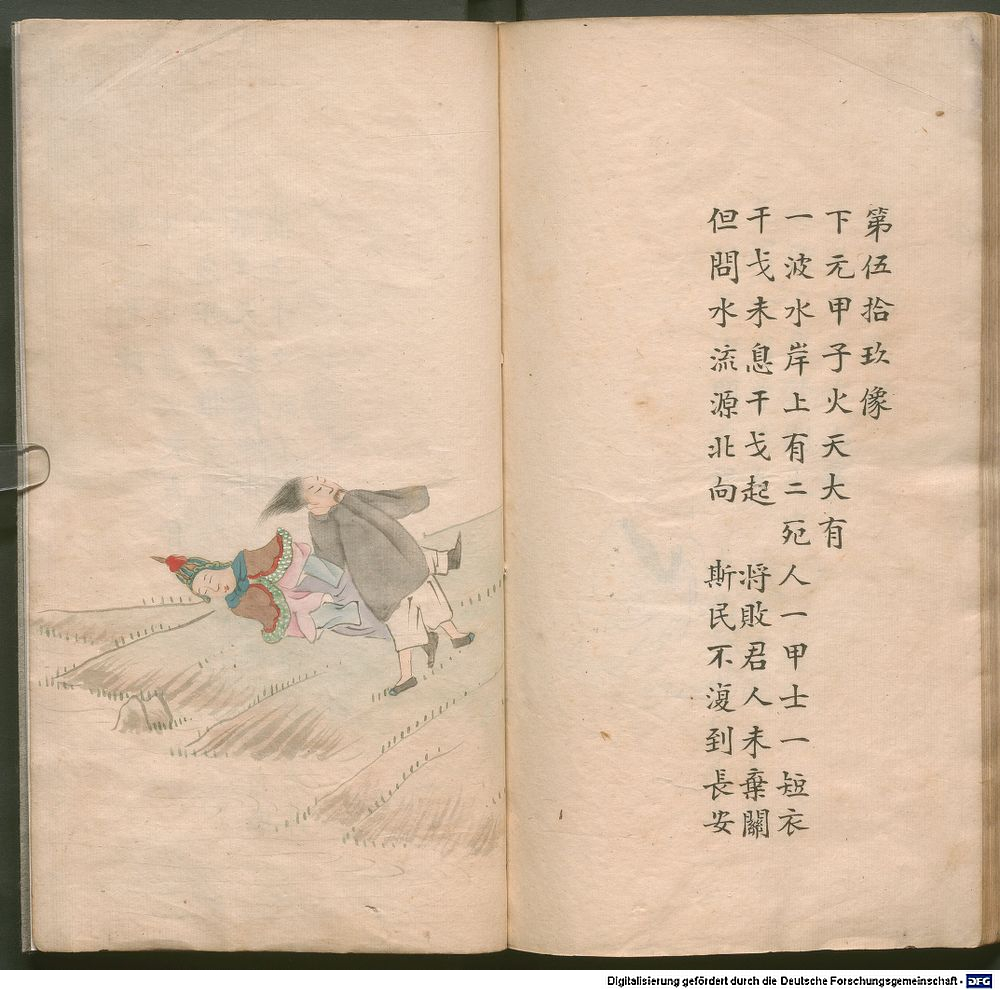 第伍拾玖像
下元甲子火天大有
一波水岸上有二死人一甲士一短衣
干戈未息干戈起 将敗君人未棄關
但問水流源北向 斯民不復到長安
Digitalisierung gefördert durch die Deutsche Forschungsgemeinschaft - DFG